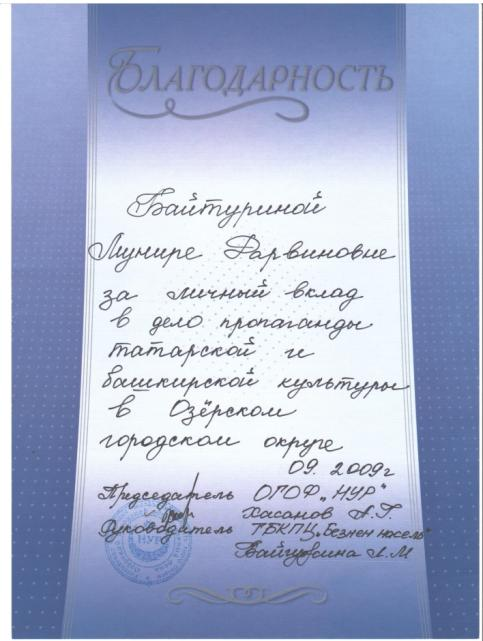 Благодарность
Байтуриной
Мунире Дарвиновне
за личный вклад
в дело пропаганды
татарской и
башкирской культуры
в Озёрском
городском округе
09. 2009г
Председатель ОГОФ „НУР"
Хасанов А.Г.
Руководитель ТБКПЦ „Безнен
НУР